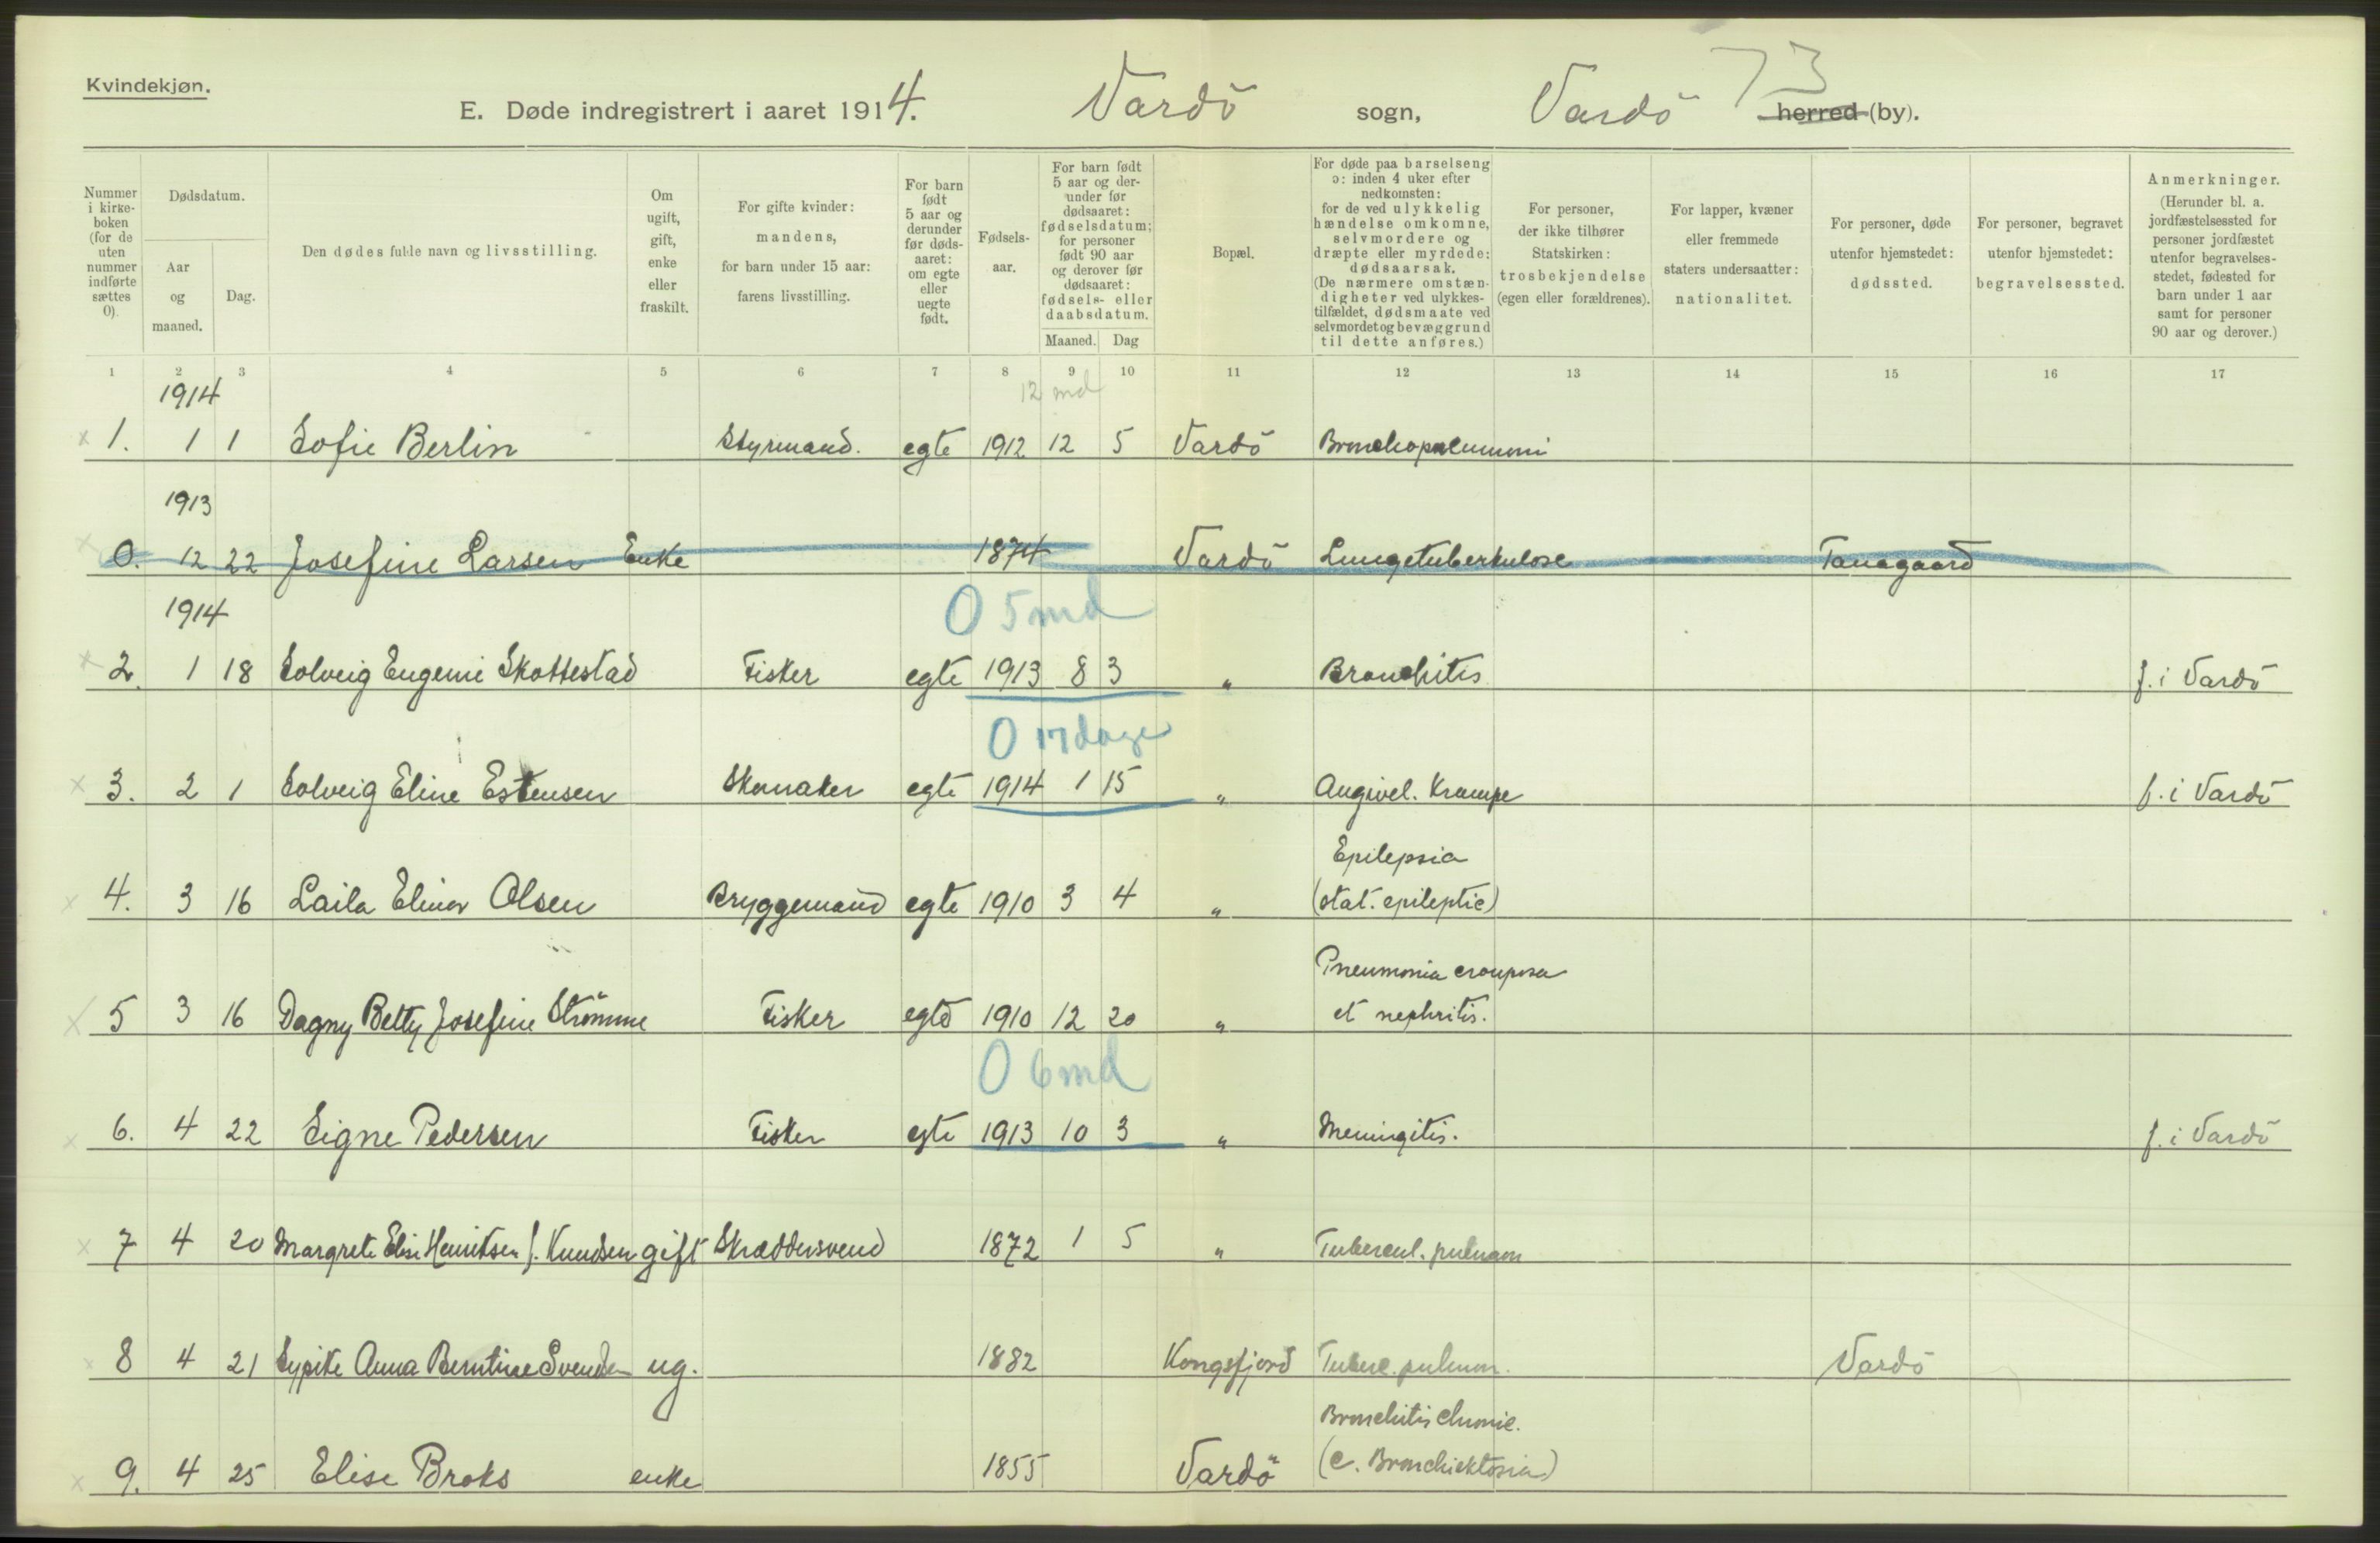 Kvindekjøn.
73
E. Døde indregistrert i aaret 1914. Vardö sogn, Vardö herred (by).
Nummer i kirke- boken (for de uten nummer indførte sættes 0)
Dødsdatum.
Aar og maaned.
Dag.
Den dødes fulde navn og livsstilling.
Om ugift, gift, enke eller fraskilt.
For gifte kvinder: mandens, for barn under 15 aar: farens livsstilling.
For barn født 5 aar og derunder før døds- aaret: om egte eller uegte født.
Fødsels- aar.
For barn født 5 aar og der- under før dødsaaret: fødselsdatum; for personer født 90 aar og derover før dødsaaret: fødsels- eller daabsdatum.
Maaned. Dag
Bopæl.
For døde paa barselseng ɔ: inden 4 uker efter nedkomsten: for de ved ulykkelig hændelse omkomne, selvmordere og dræpte eller myrdede: dødsaarsak. (De nærmere omstæn- digheter ved ulykkes- tilfældet, dødsmaate ved selvmordet og bevæggrund til dette anføres.)
For personer, der ikke tilhører Statskirken: trosbekjendelse (egen eller forældrenes).
For lapper, kvæner eller fremmede staters undersaatter: nationalitet.
For personer, døde utenfor hjemstedet: dødssted.
For personer, begravet utenfor hjemstedet: begravelsessted.
Anmerkninger. (Herunder bl. a. jordfæstelsessted for personer jordfæstet utenfor begravelses- stedet, fødested for barn under 1 aar samt for personer 90 aar og derover.)
1 2 3 4 5 6 7 8 9 10 11 12 13 14 15 16 17
1914 12 md
× 1. 1 1 Sofie Berlin Styrmand. egte 1912 12 5 Vardö Bronchopneumoni
1913
× 0. 12 22 Josefine Larsen Enke 1874 Vardö Lungetuberkulose Tanagaard
1914 0 5 md
× 2. 1 18 Solveig Eugenie Skottestad Fisker egte 1913 8 3 " Bronchitis f. i Vardö
0 17 dage
× 3. 2 1 Solveig Eline Estensen Skomaker egte 1914 1 15 " Angivel. Krampe f. i Vardö
Epilepsia
× 4. 3 16 Laila Elinor Olsen Bryggemand egte 1910 3 4 " (stat. epileptic)
Pneumonia crouposa
× 5 3 16 Dagny Betty Josefine Strömme Fisker egte 1910 12 20 " et nephritis.
0 6 md
× 6. 4 22 Signe Pedersen Fisker egte 1913 10 3 " Meningitis. f. i Vardö
× 7 4 20 Margrete Elise Henriksen f. Knudsen gift Skræddersvend 1872 1 5 " Tubercul. pulmon
× 8 4 21 Anna Berntine Svendsen ug. 1882 Kongsfjord Tuberc. pulmon. Vardö
Bronchitis chronic.
× 9. 4 25 Elise Broks enke 1855 Vardö (c. Bronchiektasia)